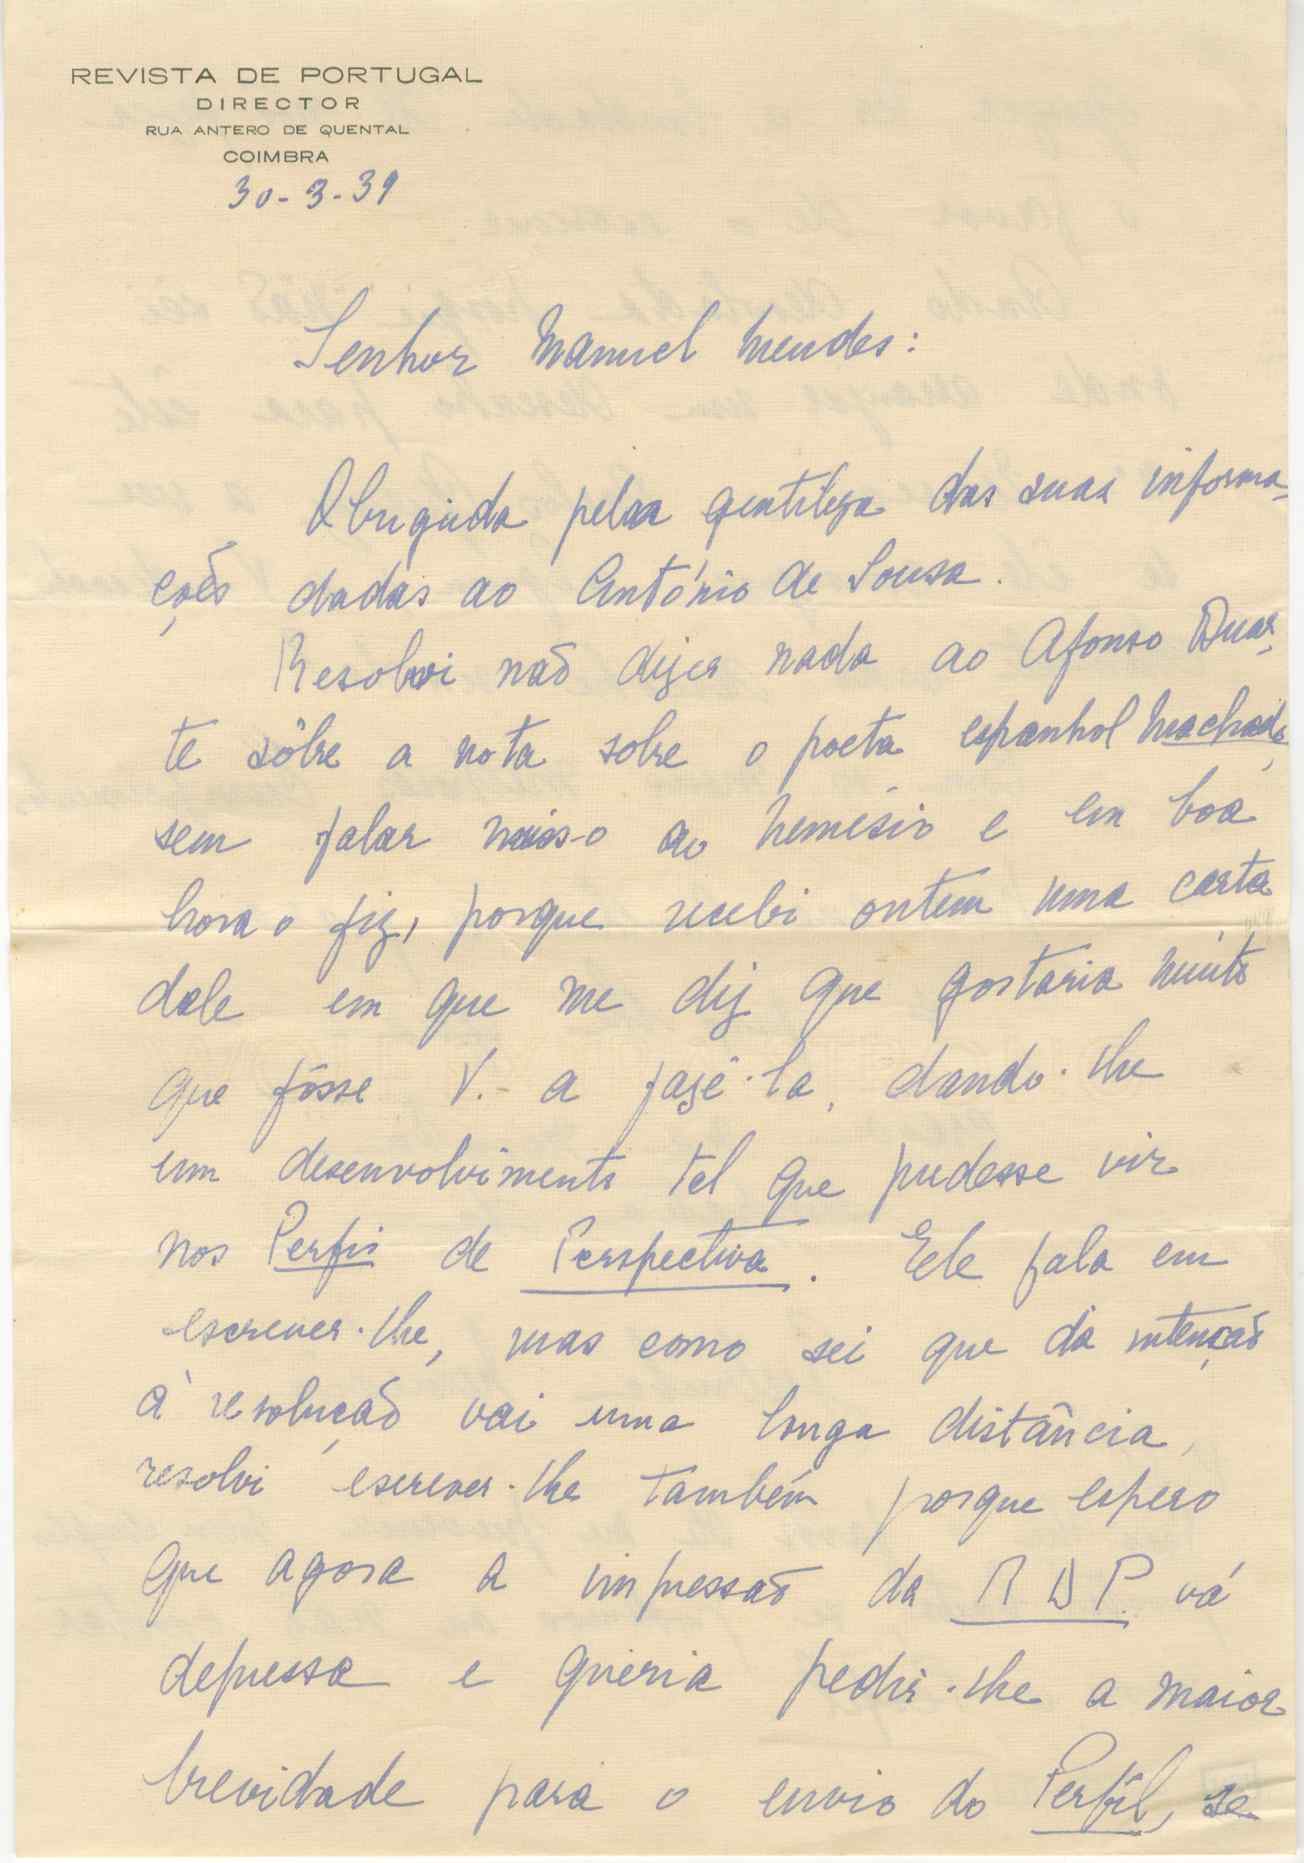 REVISTA DE PORTUGAL
DIRECTOR
RUA ANTERO DE QUENTAL
COIMBRA
30-3-39
Senhor Manuel Mendes:
Obrigada pela gentileza das suas informa-
ções dadas ao António de Sousa.
Resolvi não dizer nada ao Afonso Duar-
te sôbre a nota sobre o poeta espanhol Machado,
sem falar nisso ao Nemésio e em boa
hora o fiz, porque recebi ontem uma carta
dele em que me diz que gostaria muito
que fôsse V. a fazê-la, dando-lhe
um desenvolvimento tal que pudesse vir
nos Perfis de Perspectiva. Ele fala em
escrever-lhe, mas como sei que da intenção
à resolução vai uma longa distância,
resolvi escrever-lhe também porque espero
que agora a impressão da R D P. vá
depressa e queria pedir-lhe a maior
brevidade para o envio do Perfil, se